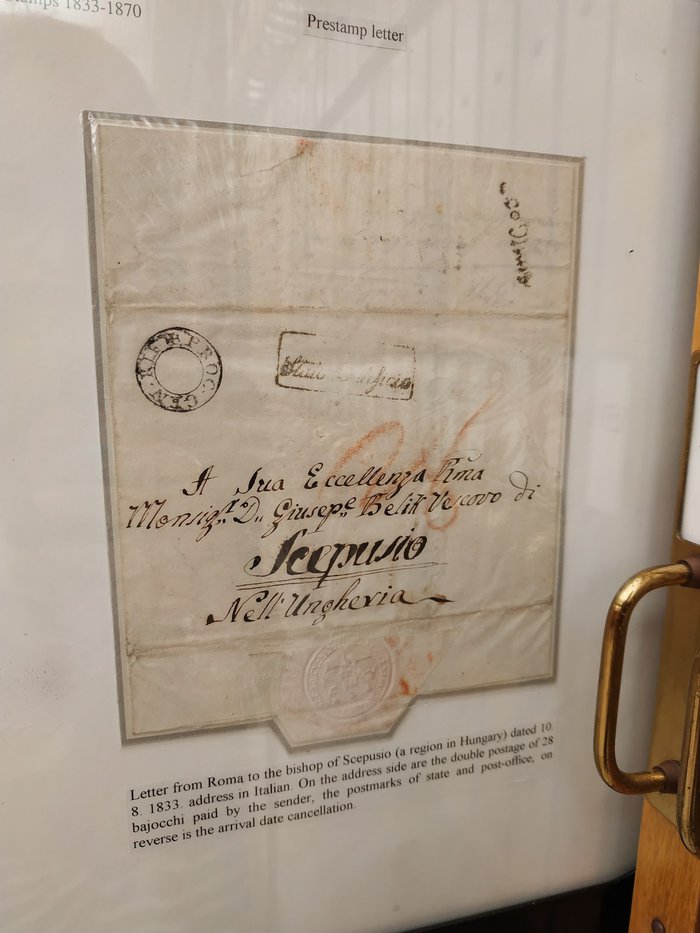 Stamps 1833-1870
Prestamp letter
GEN. RIF E PROC.
A Sua Eccellenza
Monsig.r D. Giusep.e Belik Vescovo di
Scepusio
Nell'Ungheria
Letter from Roma to the bishop of Scepusio (a region in Hungary) dated 10.
8. 1833. address in Italian. On the address side are the double postage of 28
bajocchi paid by the sender, the postmarks of state and post-office, on
reverse is the arrival date cancellation.